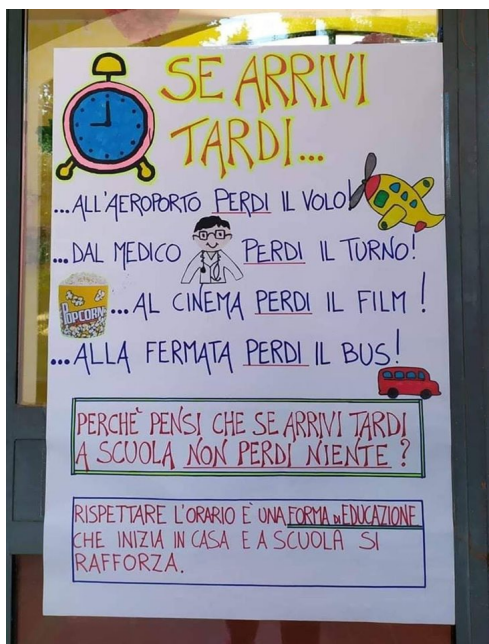 SE ARRIVI
TARDI...
...ALL'AEROPORTO PERDI IL VOLO!
...DAL MEDICO PERDI IL TURNO!
POPCORN
...AL CINEMA PERDI IL FILM!
...ALLA FERMATA PERDI IL BUS!
PERCHÈ PENSI CHE SE ARRIVI TARDI
A SCUOLA NON PERDI NIENTE?
RISPETTARE L'ORARIO È UNA FORMA di EDUCAZIONE
CHE INIZIA IN CASA E A SCUOLA SI
RAFFORZA.